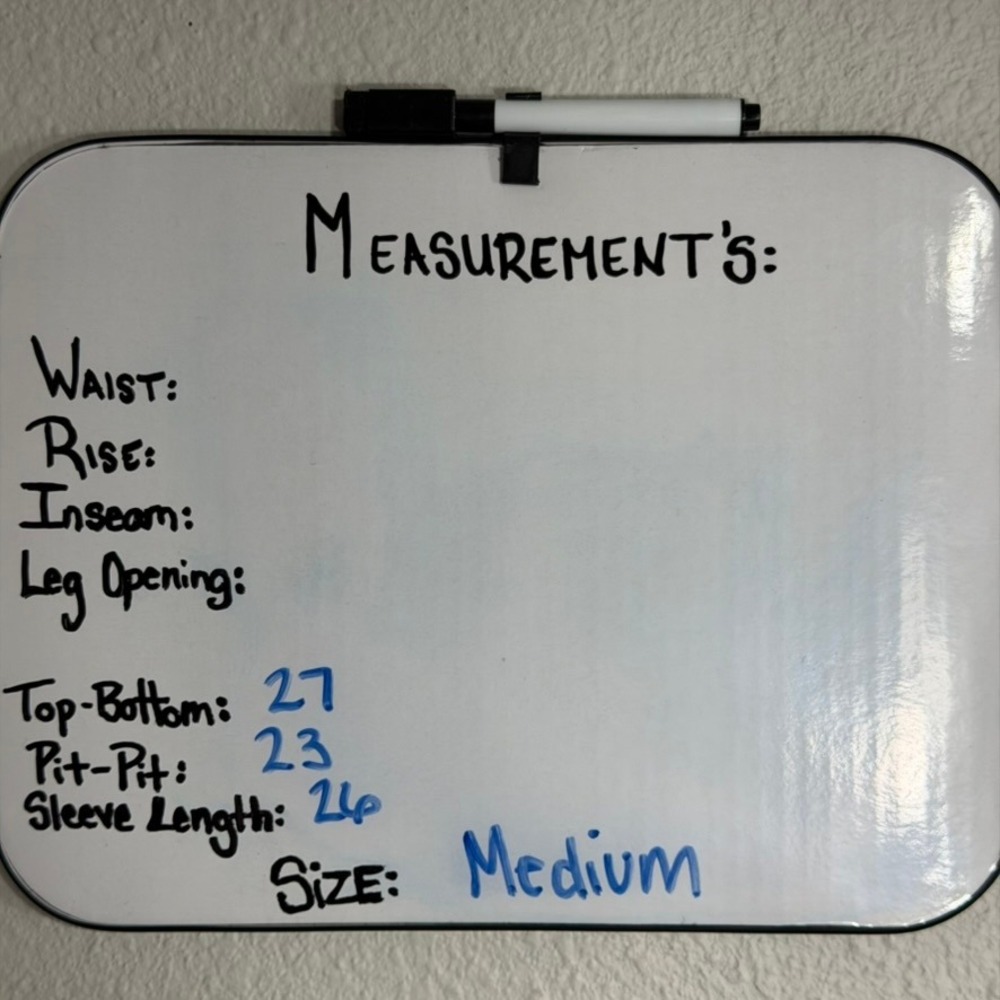 MEASUREMENT'S:
WAIST:
RISE:
Inseam:
Leg Opening:
Top-Bottom: 27
Pit-Pit: 23
Sleeve Length: 26
SiZE: Medium